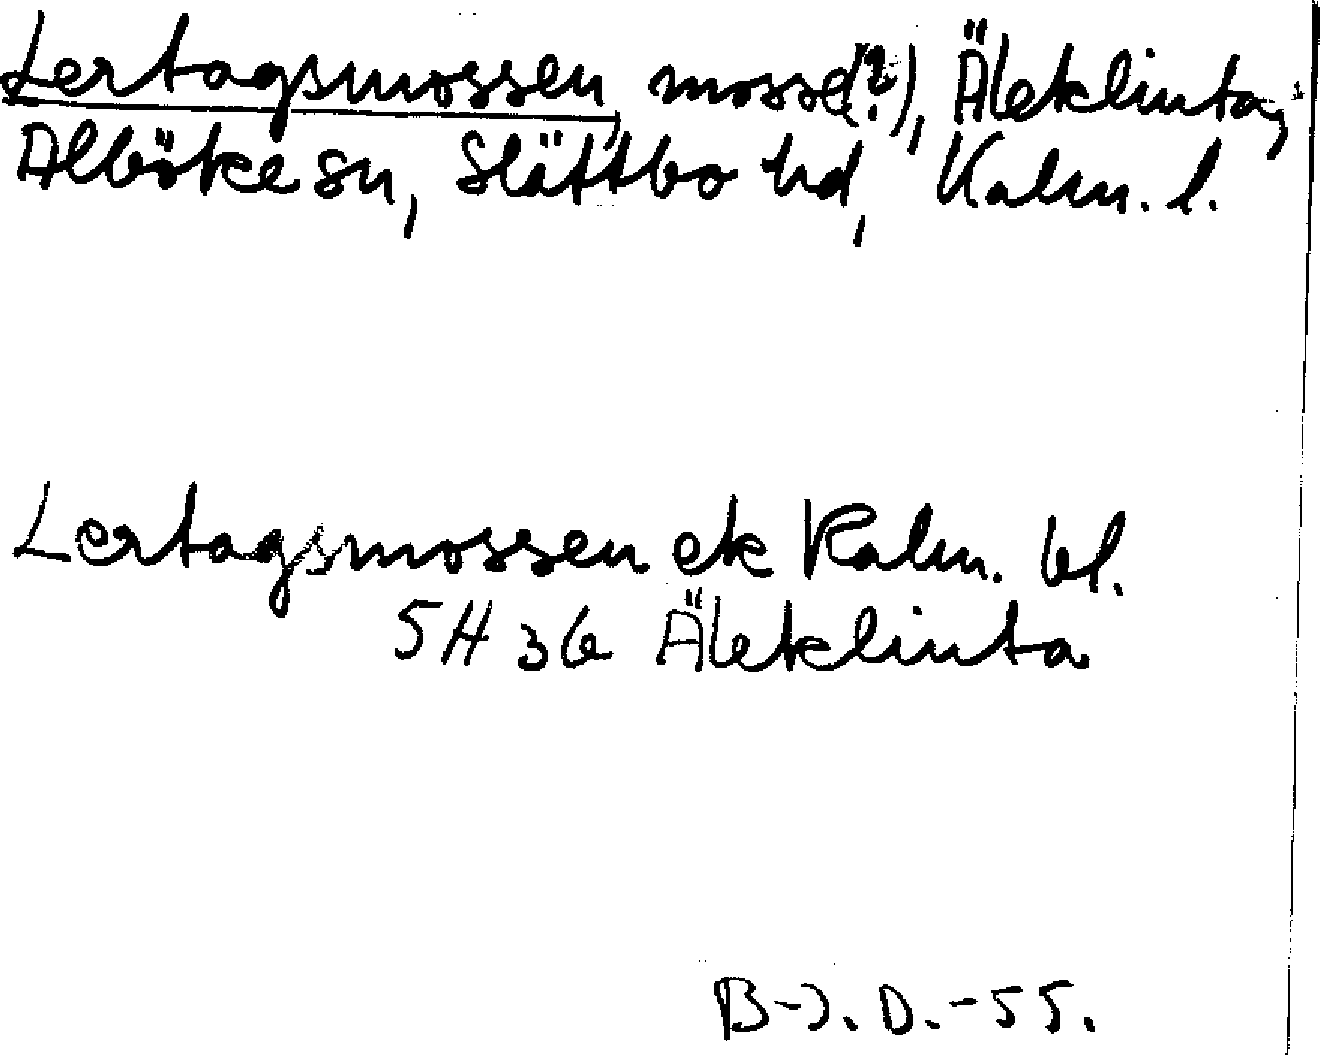 Lertagsmossen, mosse(?), Äleklinta,
Alböke sn, Slättbo hd, Kalm. l.
Lertagsmossen ek Kalm. bl.
5H 3b Äleklinta
B-J. D. -55.